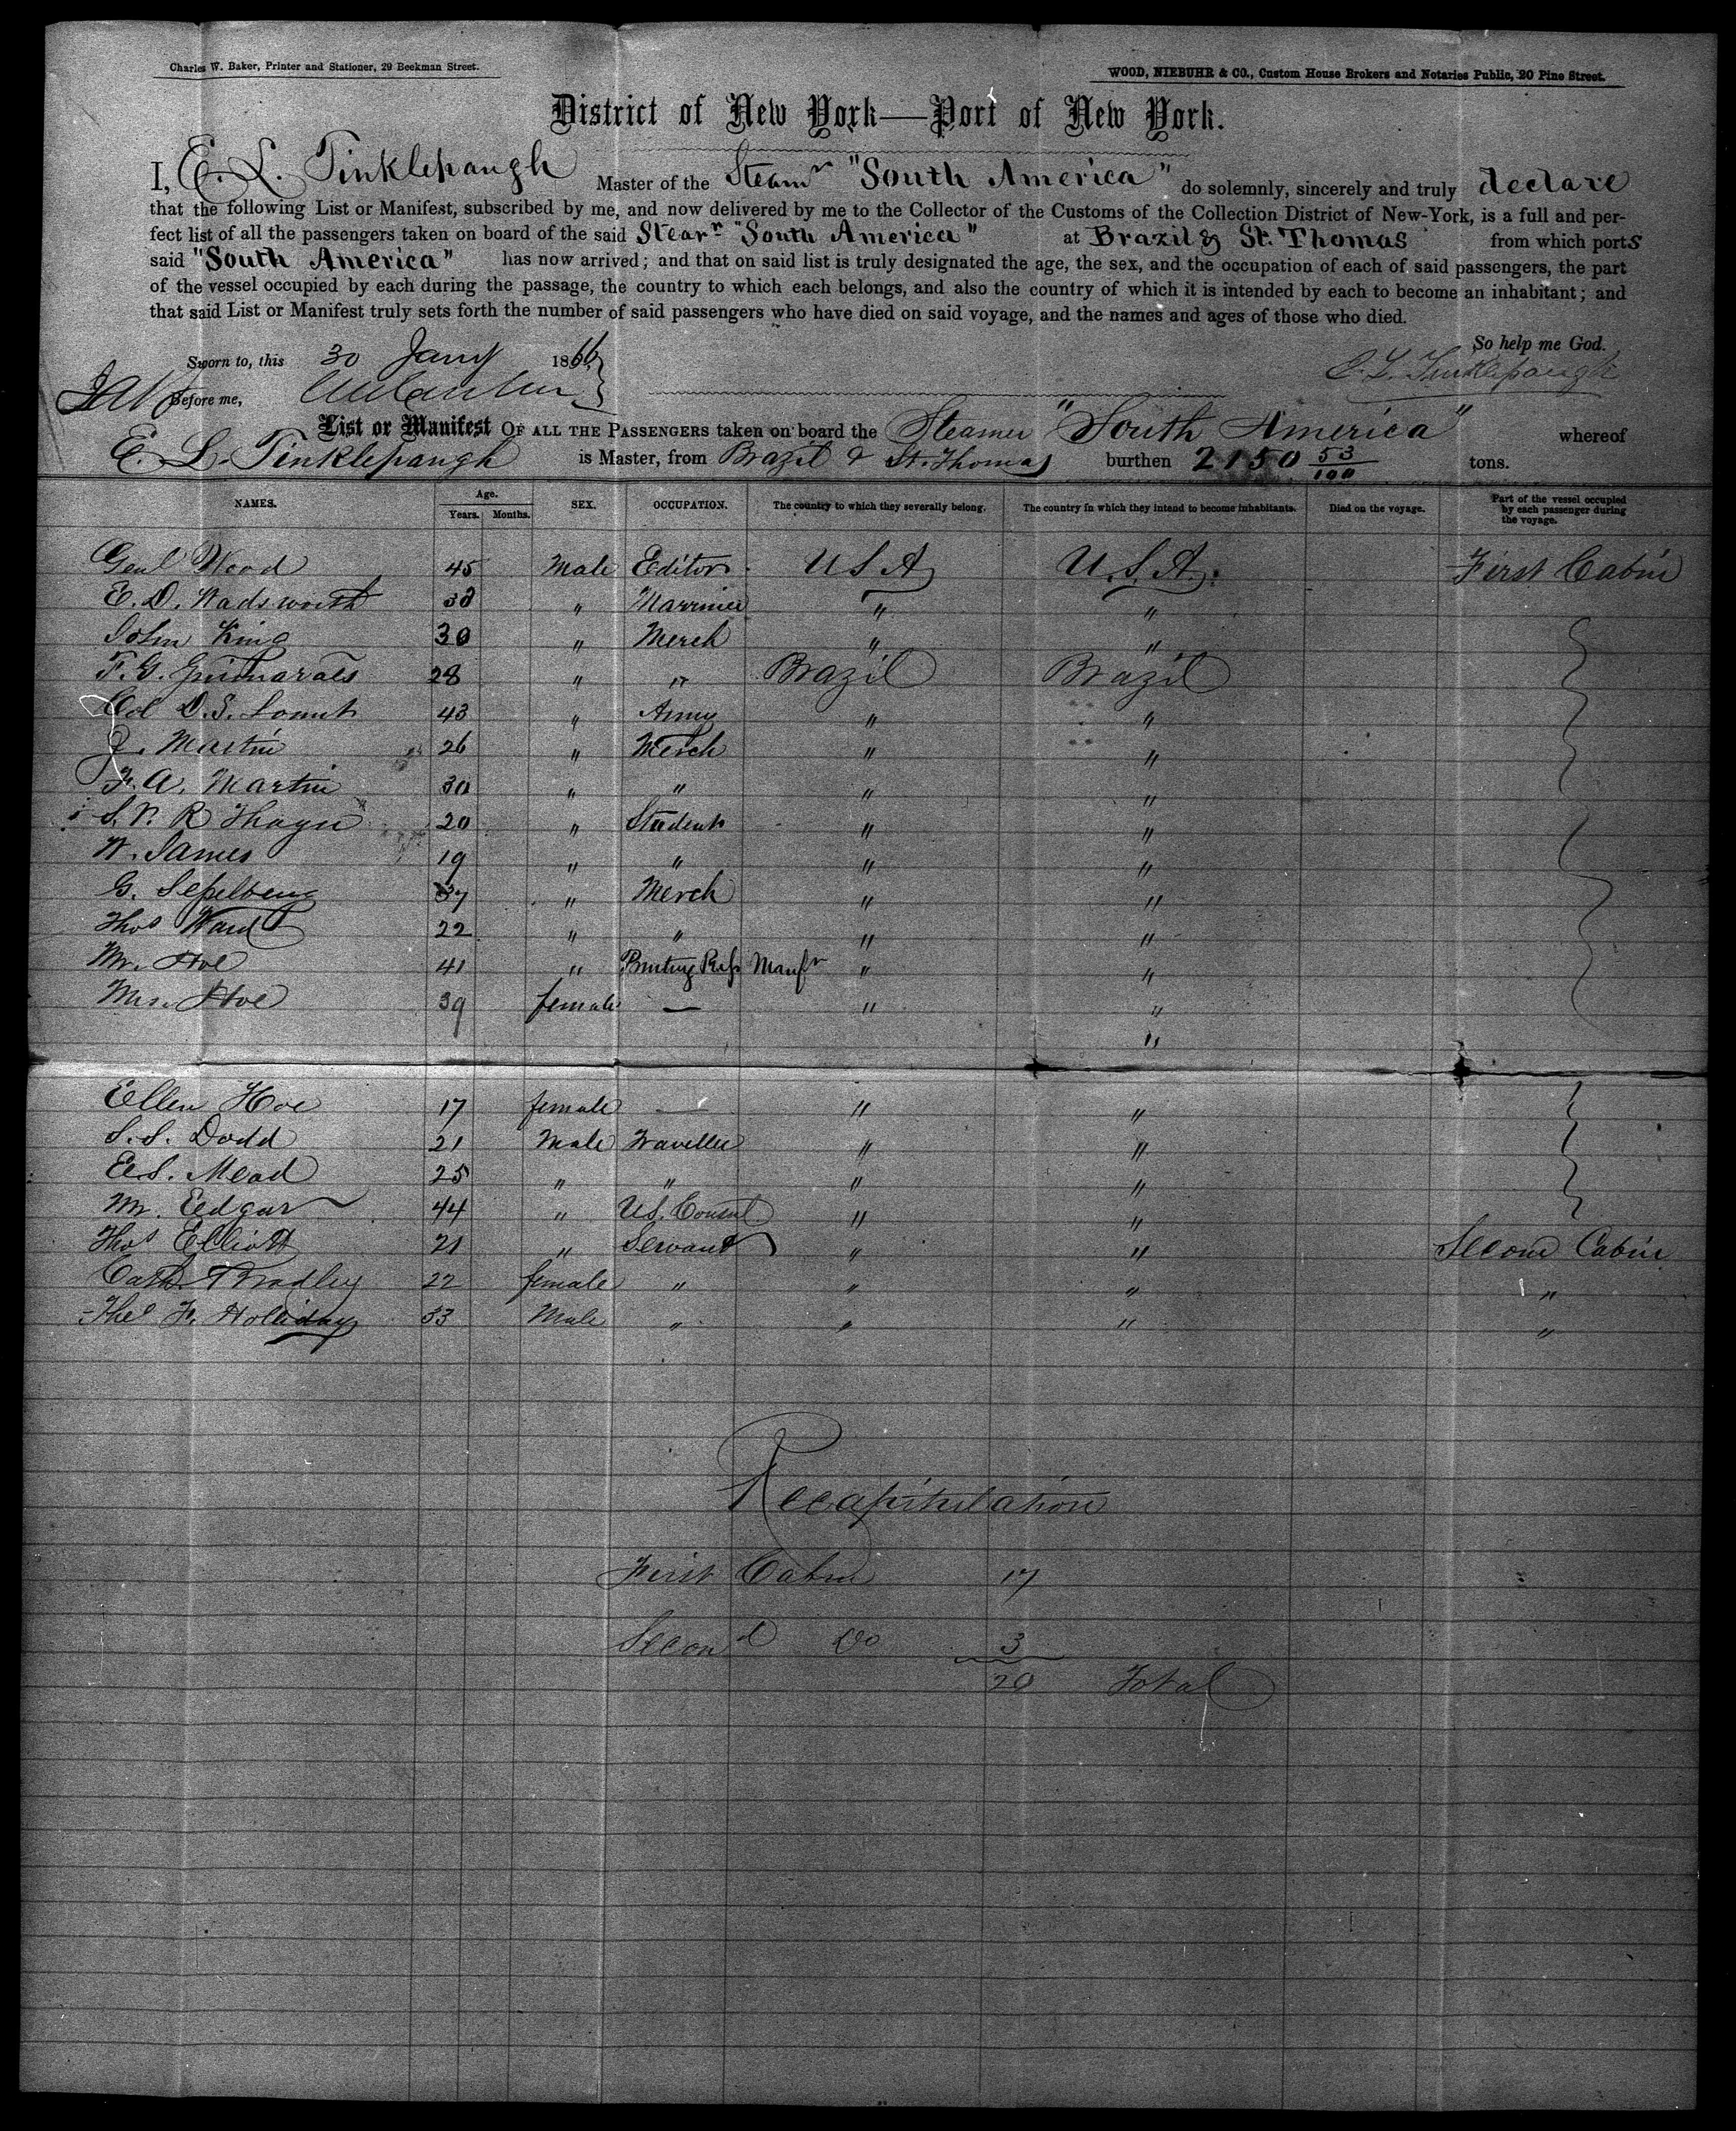 Charles W. Baker, Printer and Stationer, 29 Beekman Street.
WOOD, NIEBUHR & CO., Custom House Brokers and Notaries Public, 20 Pine Street.
District of New York—Port of New York.
I, E. L. Tinklepaugh Master of the Steamr "South America" do solemnly, sincerely and truly declare
that the following List or Manifest, subscribed by me, and now delivered by me to the Collector of the Customs of the Collection District of New-York, is a full and per-
fect list of all the passengers taken on board of the said Stearr "South America" at Brazil & St. Thomas from which ports
said "South America" has now arrived; and that on said list is truly designated the age, the sex, and the occupation of each of said passengers, the part
of the vessel occupied by each during the passage, the country to which each belongs, and also the country of which it is intended by each to become an inhabitant; and
that said List or Manifest truly sets forth the number of said passengers who have died on said voyage, and the names and ages of those who died.
So help me God.
Sworn to, this 30 Jany 1866
E. L. Tinklepaugh
Before me,
List or Manifest OF ALL THE PASSENGERS taken on board the Steamer "South America" whereof
E. L. Tinklepaugh is Master, from Brazil & St. Thomas burthen 2150 53/100 tons.
NAMES. Age. Years. Months. SEX. OCCUPATION. The country to which they severally belong. The country in which they intend to become inhabitants. Died on the voyage. Part of the vessel occupied by each passenger during the voyage.
Genl Wood 45 Male Editor USA U.S.A. First Cabin
E. D. Wadsworth 38 " Marriner " "
John King 30 " Merch " "
F. G. Guimaraes 28 " " Brazil Brazil
Col D. S. 43 " Army " "
J. Martin 26 " Merch " "
F. A. Martin 30 " " " "
S. V. R Thayer 20 " Student " "
W. James 19 " " " "
G. 37 " Merch " "
Thos Ward 22 " " " "
Mr. Hoe 41 " Printing Press Manfr " "
Mrs. Hoe 39 female — " "
"
Ellen Hoe 17 female — " "
S. S. Dodd 21 Male Traveller " "
E. S. Mead 25 " " " "
Mr. Eedgar 44 " U.S. Consul " "
Thos Elliott 21 " Servant " " Second Cabin
Cath. Bradley 22 female " " " "
Theo F. Holliday 33 Male " " " "
Recapitulation
First Cabin 17
Second Do 3
20 Total